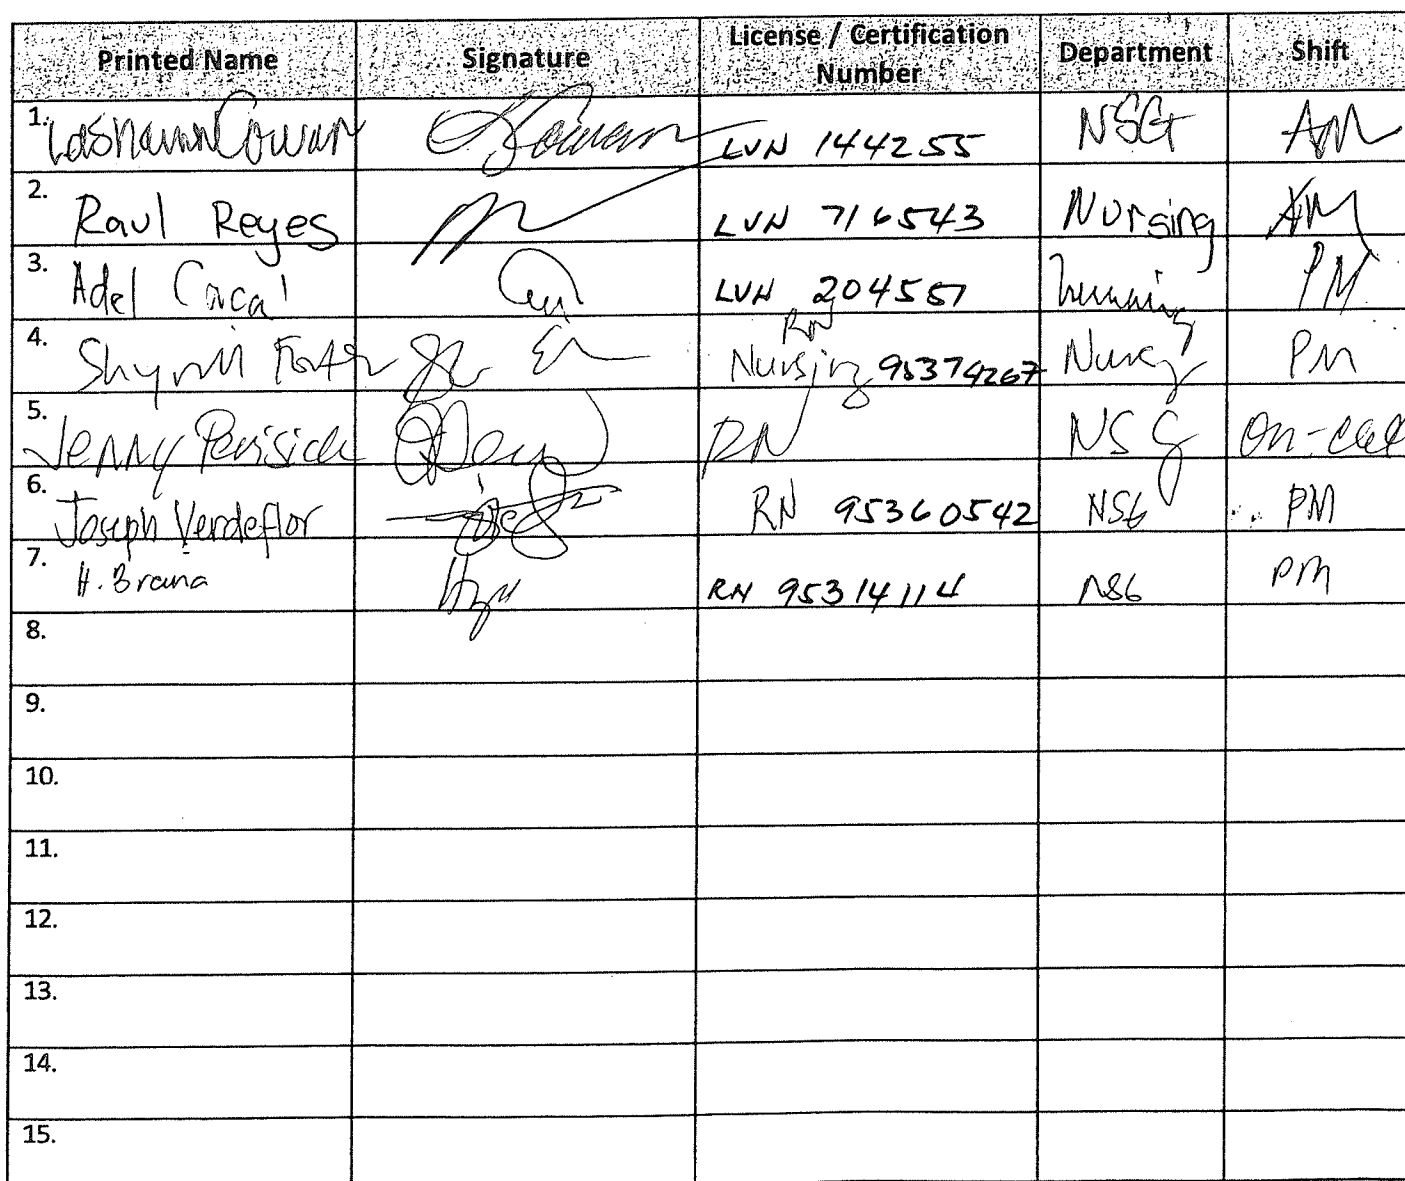 Printed Name Signature License / Certification Number Department Shift
1. Lashawn Cowan LVN 144255 NSG AM
2. Raul Reyes LVN 716543 Nursing AM
3. Adel Cacal LVN 204551 PM
4. RN Nursing 95374267 PM
5. Jenny RN NSG on-call
6. Joseph Verdeflor RN 95360542 NSG PM
7. H. Brana RN 95314114 NSG PM
8.
9.
10.
11.
12.
13.
14.
15.